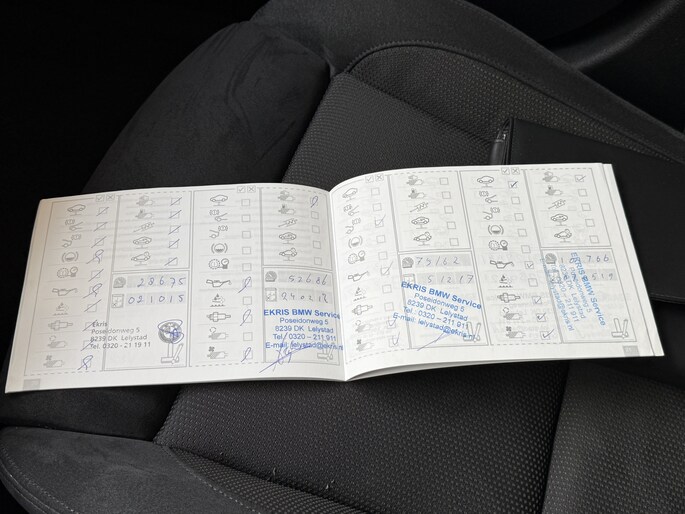 28675
021015
Ekris
Poseidonweg 5
8239 DK Lelystad
Tel. 0320 - 21 19 11
52686
EKRIS BMW Service
Poseidonweg 5
8239 DK Lelystad
Tel.: 0320 – 211 911
E-mail: lelystad@ekris.nl
79162
EKRIS BMW Service
Poseidonweg 5
8239 DK Lelystad
Tel.: 0320 – 211 911
E-mail: lelystad@ekris.nl
766
519
EKRIS BMW Service
Poseidonweg 5
8239 DK Lelystad